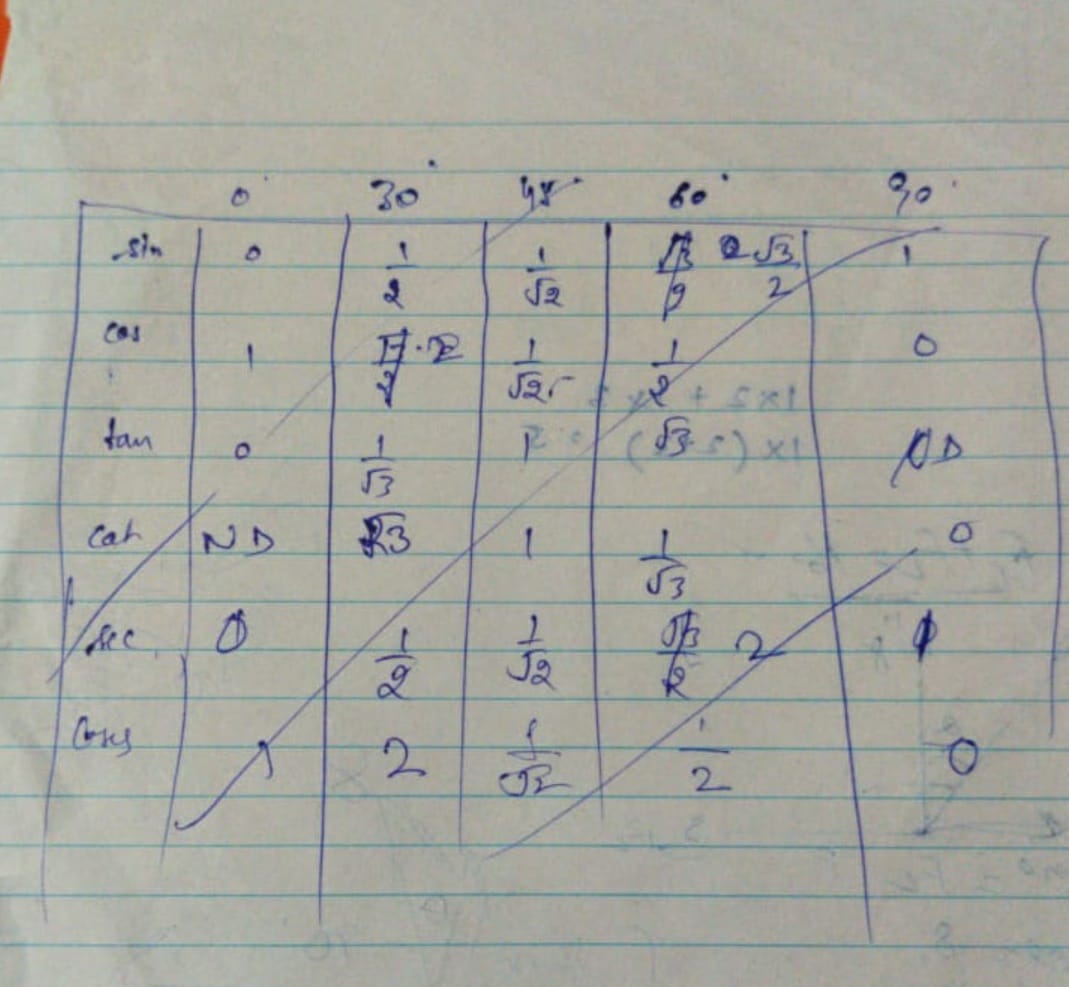 0° 30° 45° 60° 90°
sin 0 1/2 1/√2 √3/2 1
cos 1 1/√2 1/2 0
tan 0 1/√3 1 √3 ND
cot ND √3 1 1/√3 0
sec 0 1/2 1/√2 √3/2 2
2 1/√2 1/2 0